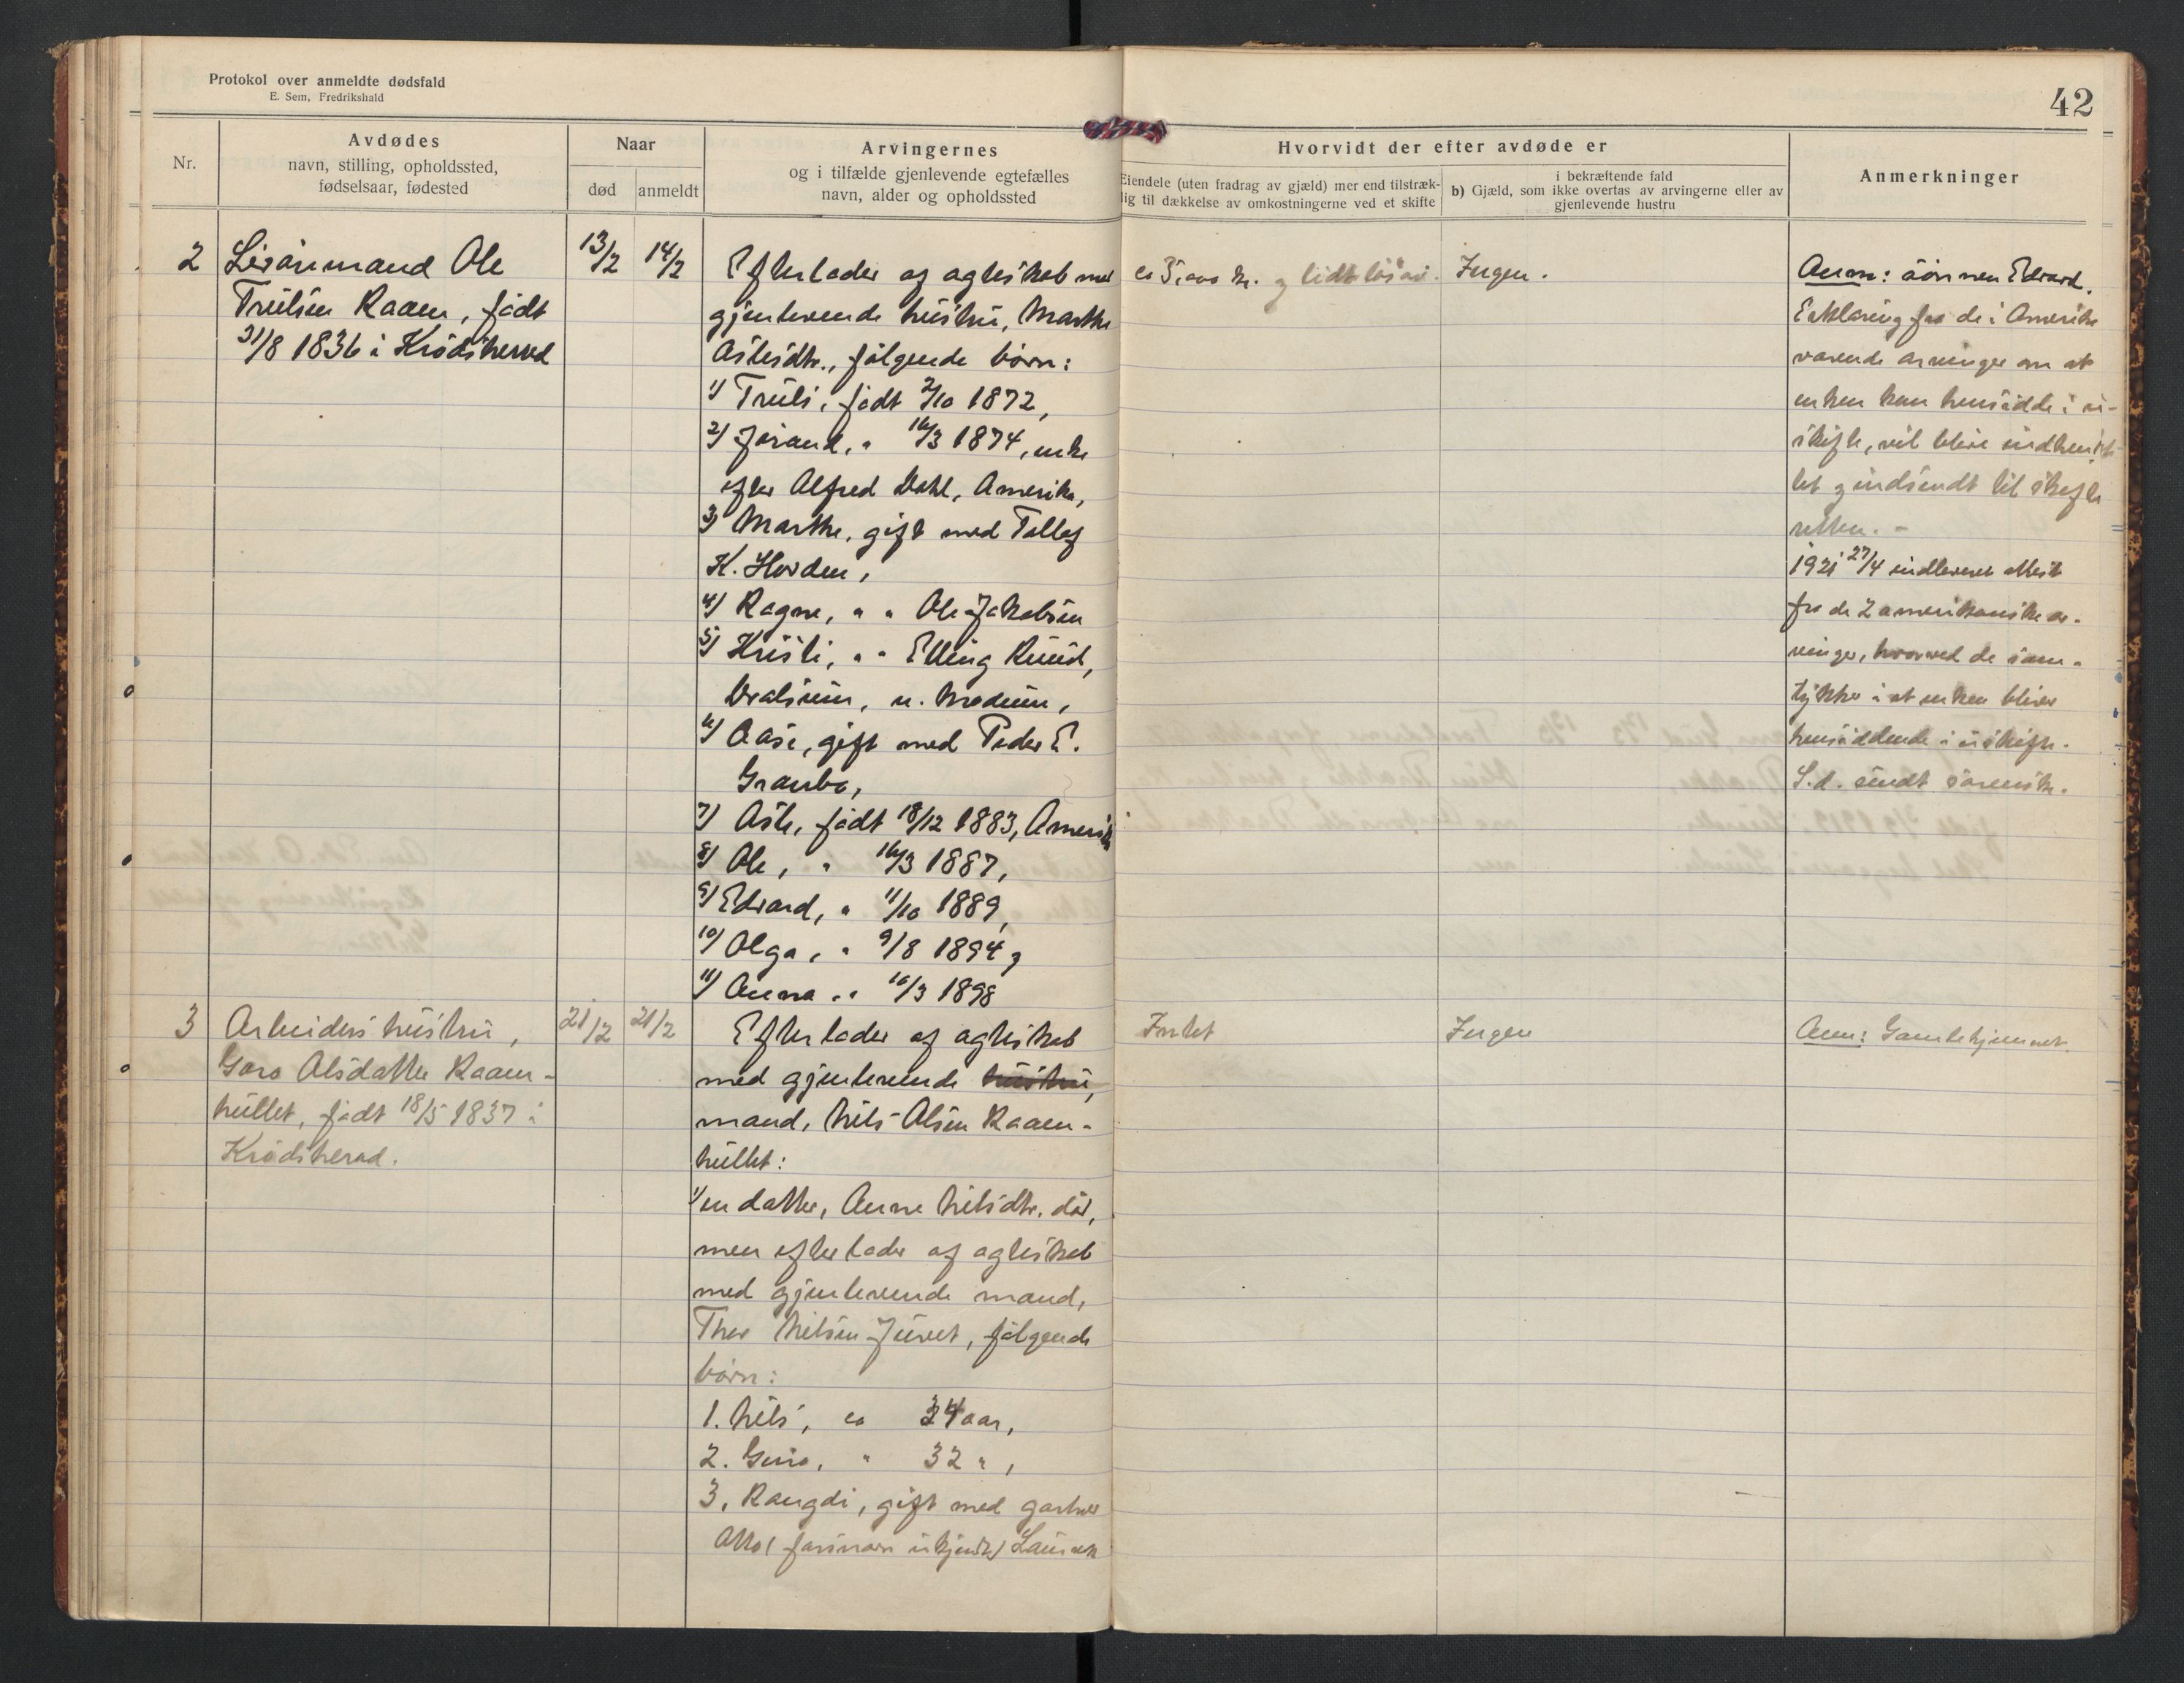 Protokol over anmeldte dødsfald
E. Sem, Fredrikshald
42
Nr.
Avdødes
navn, stilling, opholdssted,
fødselsaar, fødested
Naar
død
anmeldt
Arvingernes
og i tilfælde gjenlevende egtefælles
navn, alder og opholdssted
Hvorvidt der efter avdøde er
Eiendele (uten fradrag av gjæld) mer end tilstræk-
lig til dækkelse av omkostningerne ved et skifte
i bekræftende fald
b) Gjæld, som ikke overtas av arvingerne eller av
gjenlevende hustru
Anmerkninger
2
Livørimand Ole
Trulsen Raaen, født
31/8 1836 i Krødsherad
13/2
14/2
Efterlader af ægteskab med
gjenlevende hustru, Marthe
Aslesdtr., følgende børn:
1) Truls, født 2/10 1872,
2) Jørand, " 16/3 1874, enke
efter Alfred Dahl, Amerika,
3) Marthe, gift med Tollef
K. Hovden,
4) Ragne, " " Ole Jakobsen
5) Kristi, " " Elling Ruud,
Dralsrum, n. Modum,
6) Aase, gift med Peder E.
Granbo,
7) Asle, født 18/12 1883, Amerika
8) Ole, " 16/3 1887,
9) Edvard, " 11/10 1889,
10) Olga, " 9/8 1894 og
11) Anna " " 16/3 1898
ca 5,000 kr. og lidt løsøre.
Ingen.
Anm: sønnen Edvard.
Erklæring fra de i Amerika
værende arvinger om at
enken kan hensidde i u-
skifte, vil blive indhen-
tet og indsendt til skifte
retten. -
1921 27/4 indleveret attest
fra de 2 amerikanske ar-
vinger, hvorved de sam-
tykker i at enken bliver
hensiddende i uskifte.
S.d. sendt sorensk.
3
Arbeiders hustru,
Goro Olsdatter Raaen-
hullet, født 18/5 1837 i
Krødsherad.
21/2
21/2
Efterlader af ægteskab
med gjenlevende hustru,
mand, Nils Olsen Raaen-
hullet:
1) en datter, Anne Nilsdtr. død,
men efterlader af ægteskab
med gjenlevende mand,
Thor Nilsen Juvet, følgende
børn:
1. Nils, ca 34 aar,
2. Guro, " 32 " ,
3, Rangdi, gift med gartner
Otto (farsnavn ukjendt)
Intet
Ingen
Anm: Gamlehjemmet.